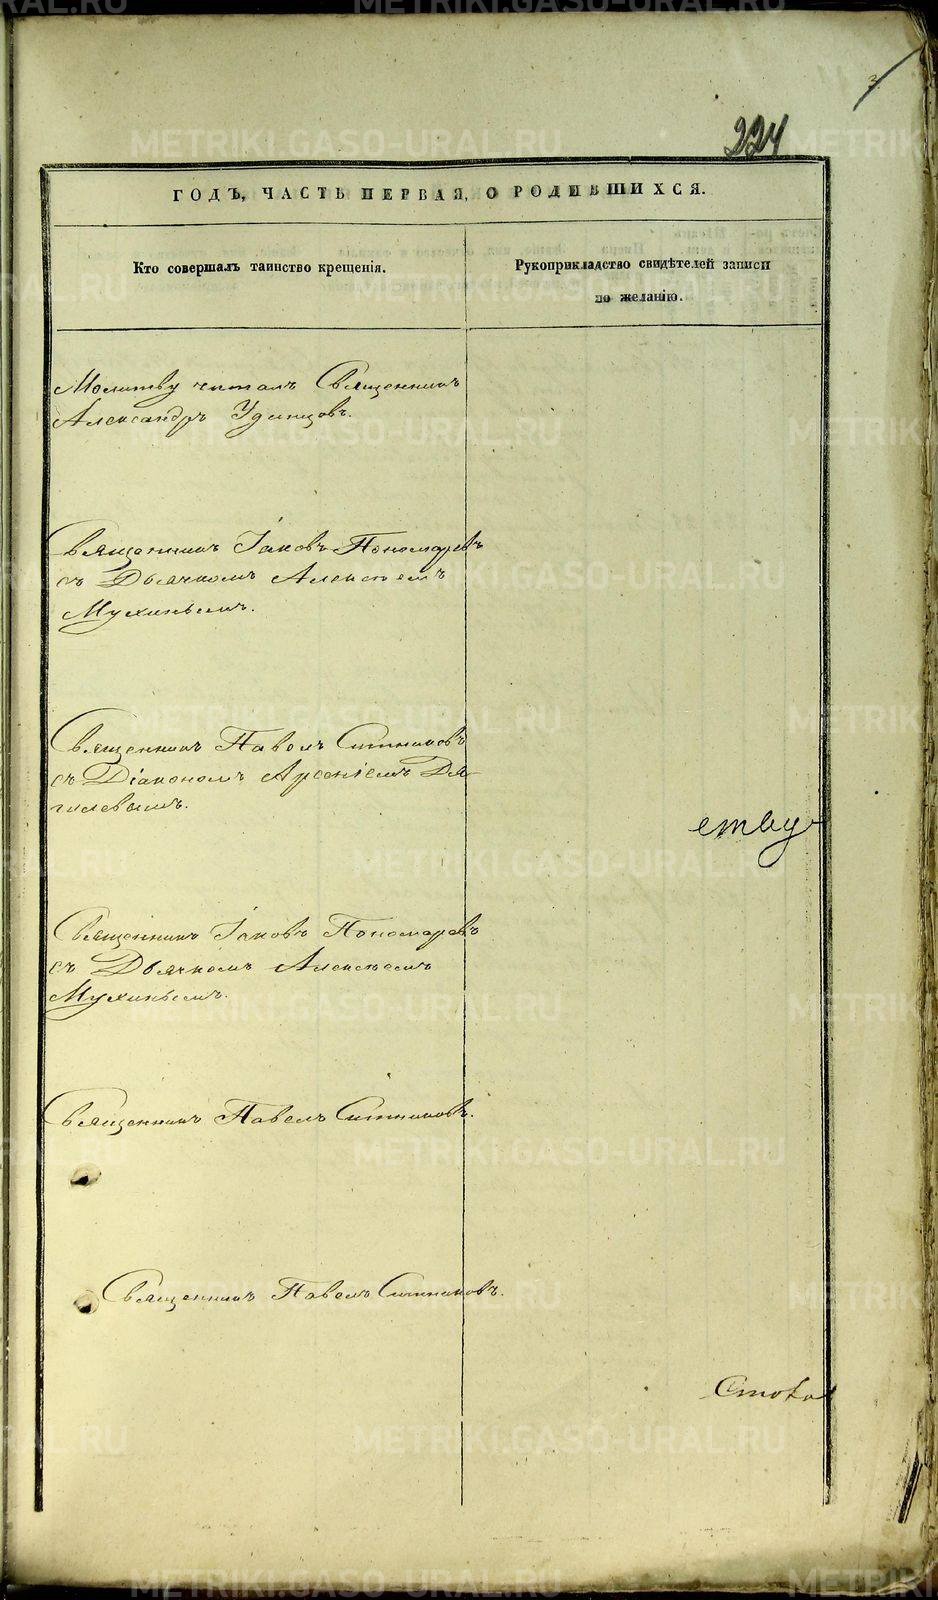 224
ГОДЪ, ЧАСТЬ ПЕРВАЯ, О РОДИВШИХСЯ.
Кто совершалъ таинство крещенія.
Рукоприкладство свидѣтелей записи
по желанію.
Молитву читалъ Священникъ
Александръ Удинцовъ.
Священникъ Іаковъ Пономаревъ
съ Дьячкомъ Алексѣемъ
Мухинымъ.
Священникъ Павелъ Ситниковъ
съ Діакономъ Арсеніемъ Дя-
гилевымъ.
ству
Священникъ Іаковъ Пономаревъ
съ Дьячкомъ Алексѣемъ
Мухинымъ.
Священникъ Павелъ Ситниковъ.
Священникъ Павелъ Ситниковъ.
METRIKI.GASO-URAL.RU